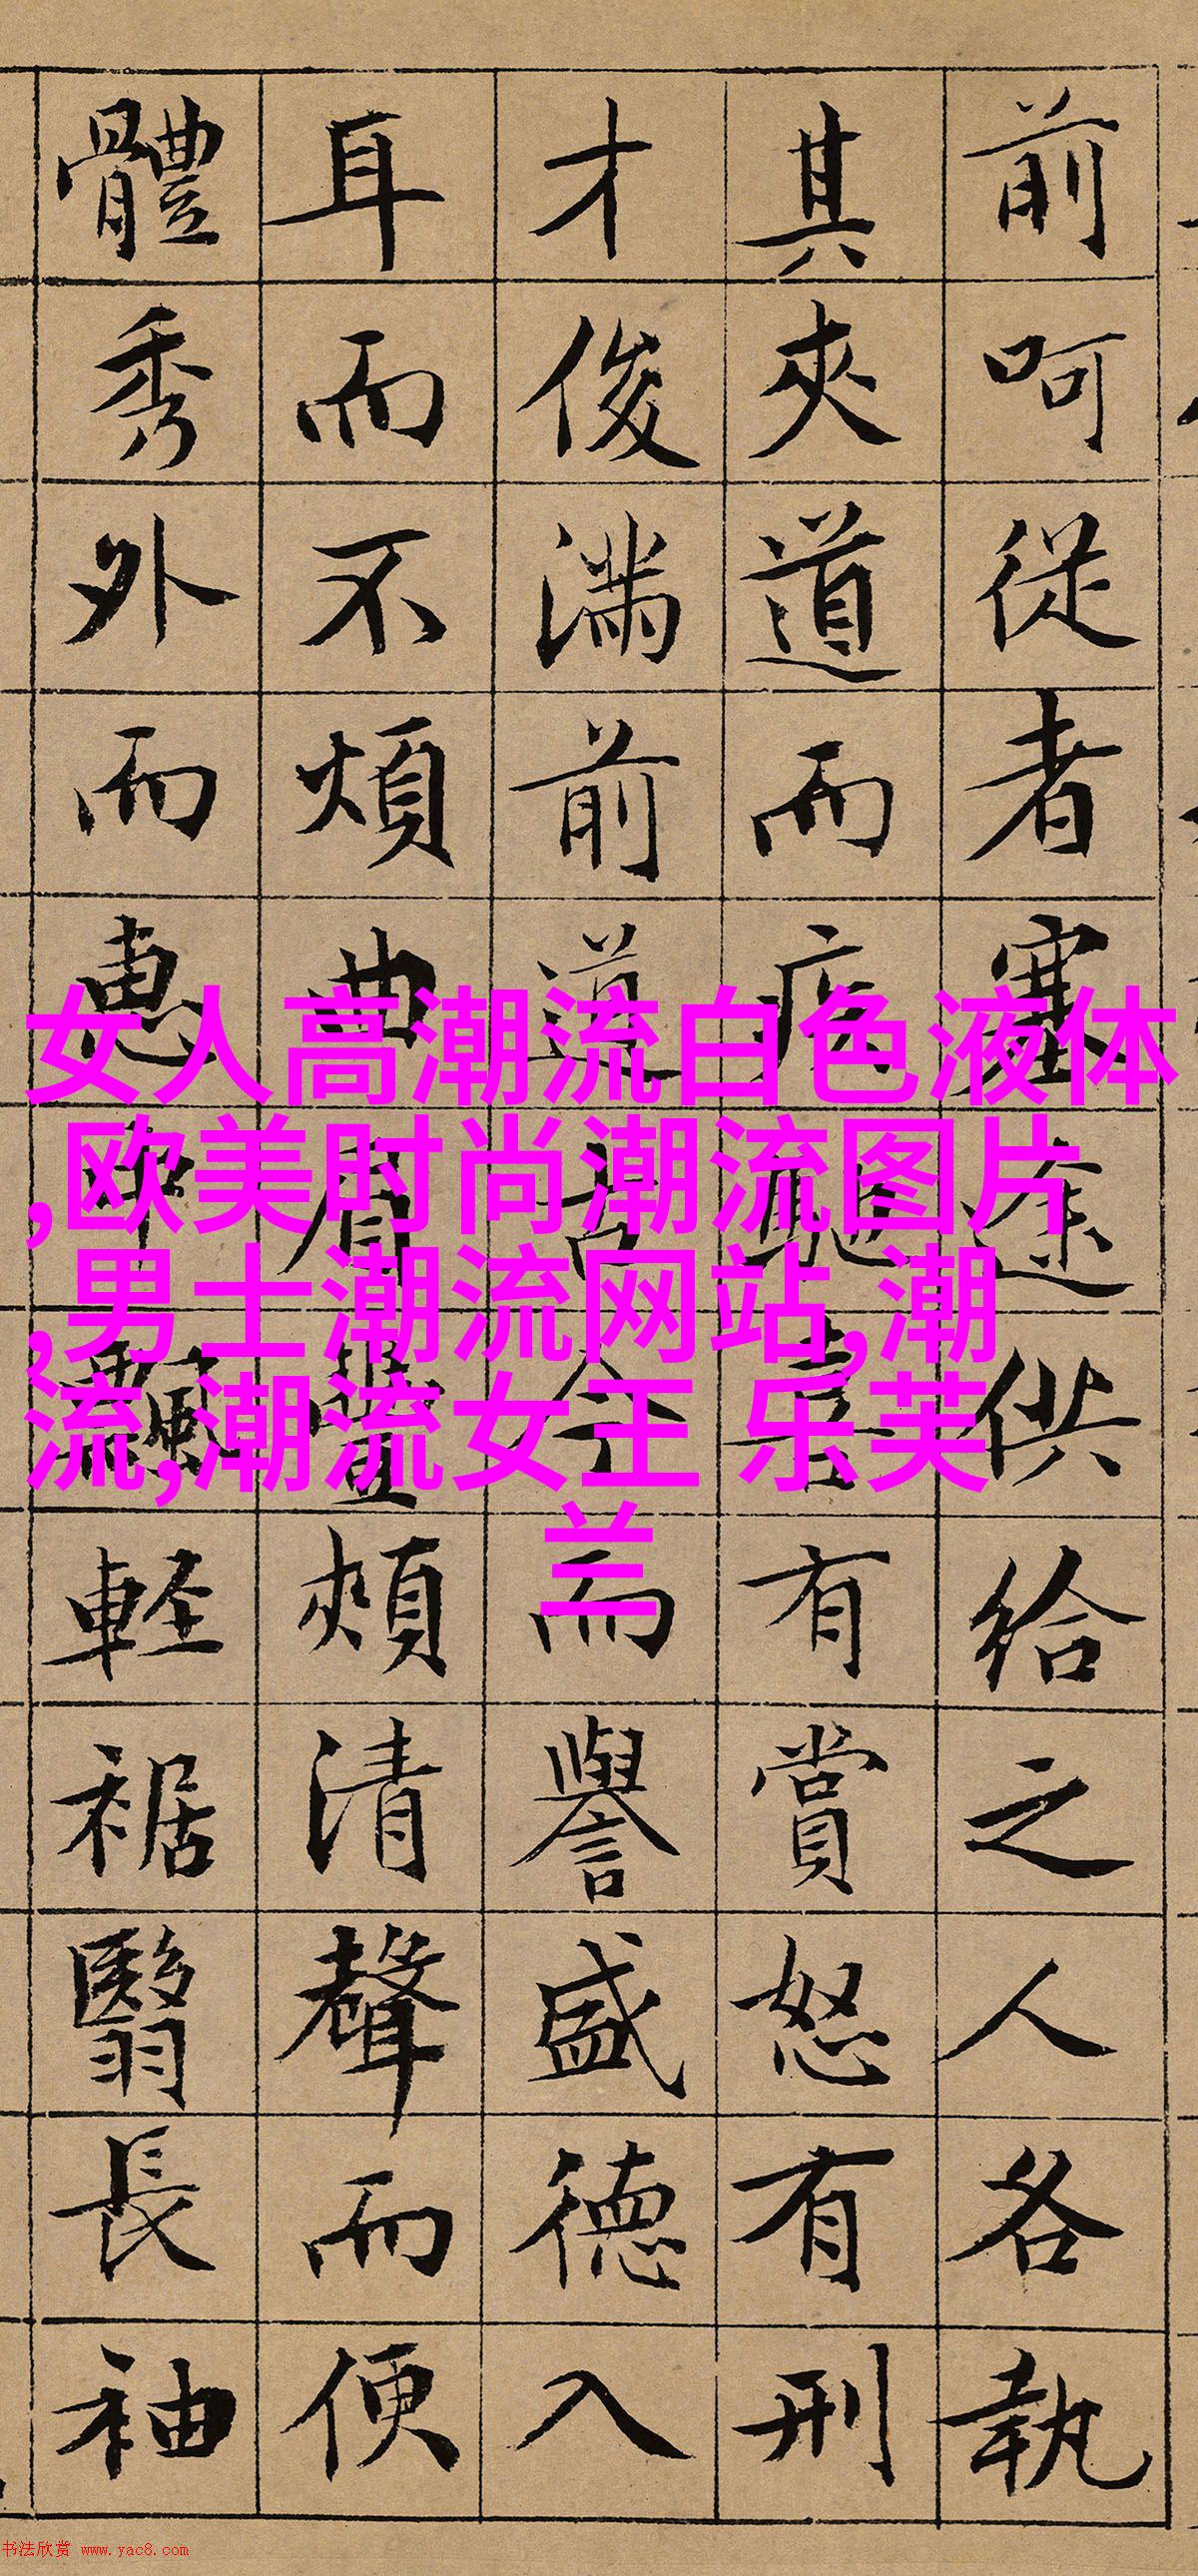 前呵從者塞途供給之人各執
其夾道而疾馳喜有賞怒有刑
才俊滿前道古今而譽盛德入
耳而不煩曲眉豐頰清聲而便
體秀外而惠中飄軽裾翳長袖
女人高潮流白色液体
,欧美时尚潮流图片
,男士潮流网站,潮
流,潮流女王 乐芙
兰
书法欣赏 www.yac8.com